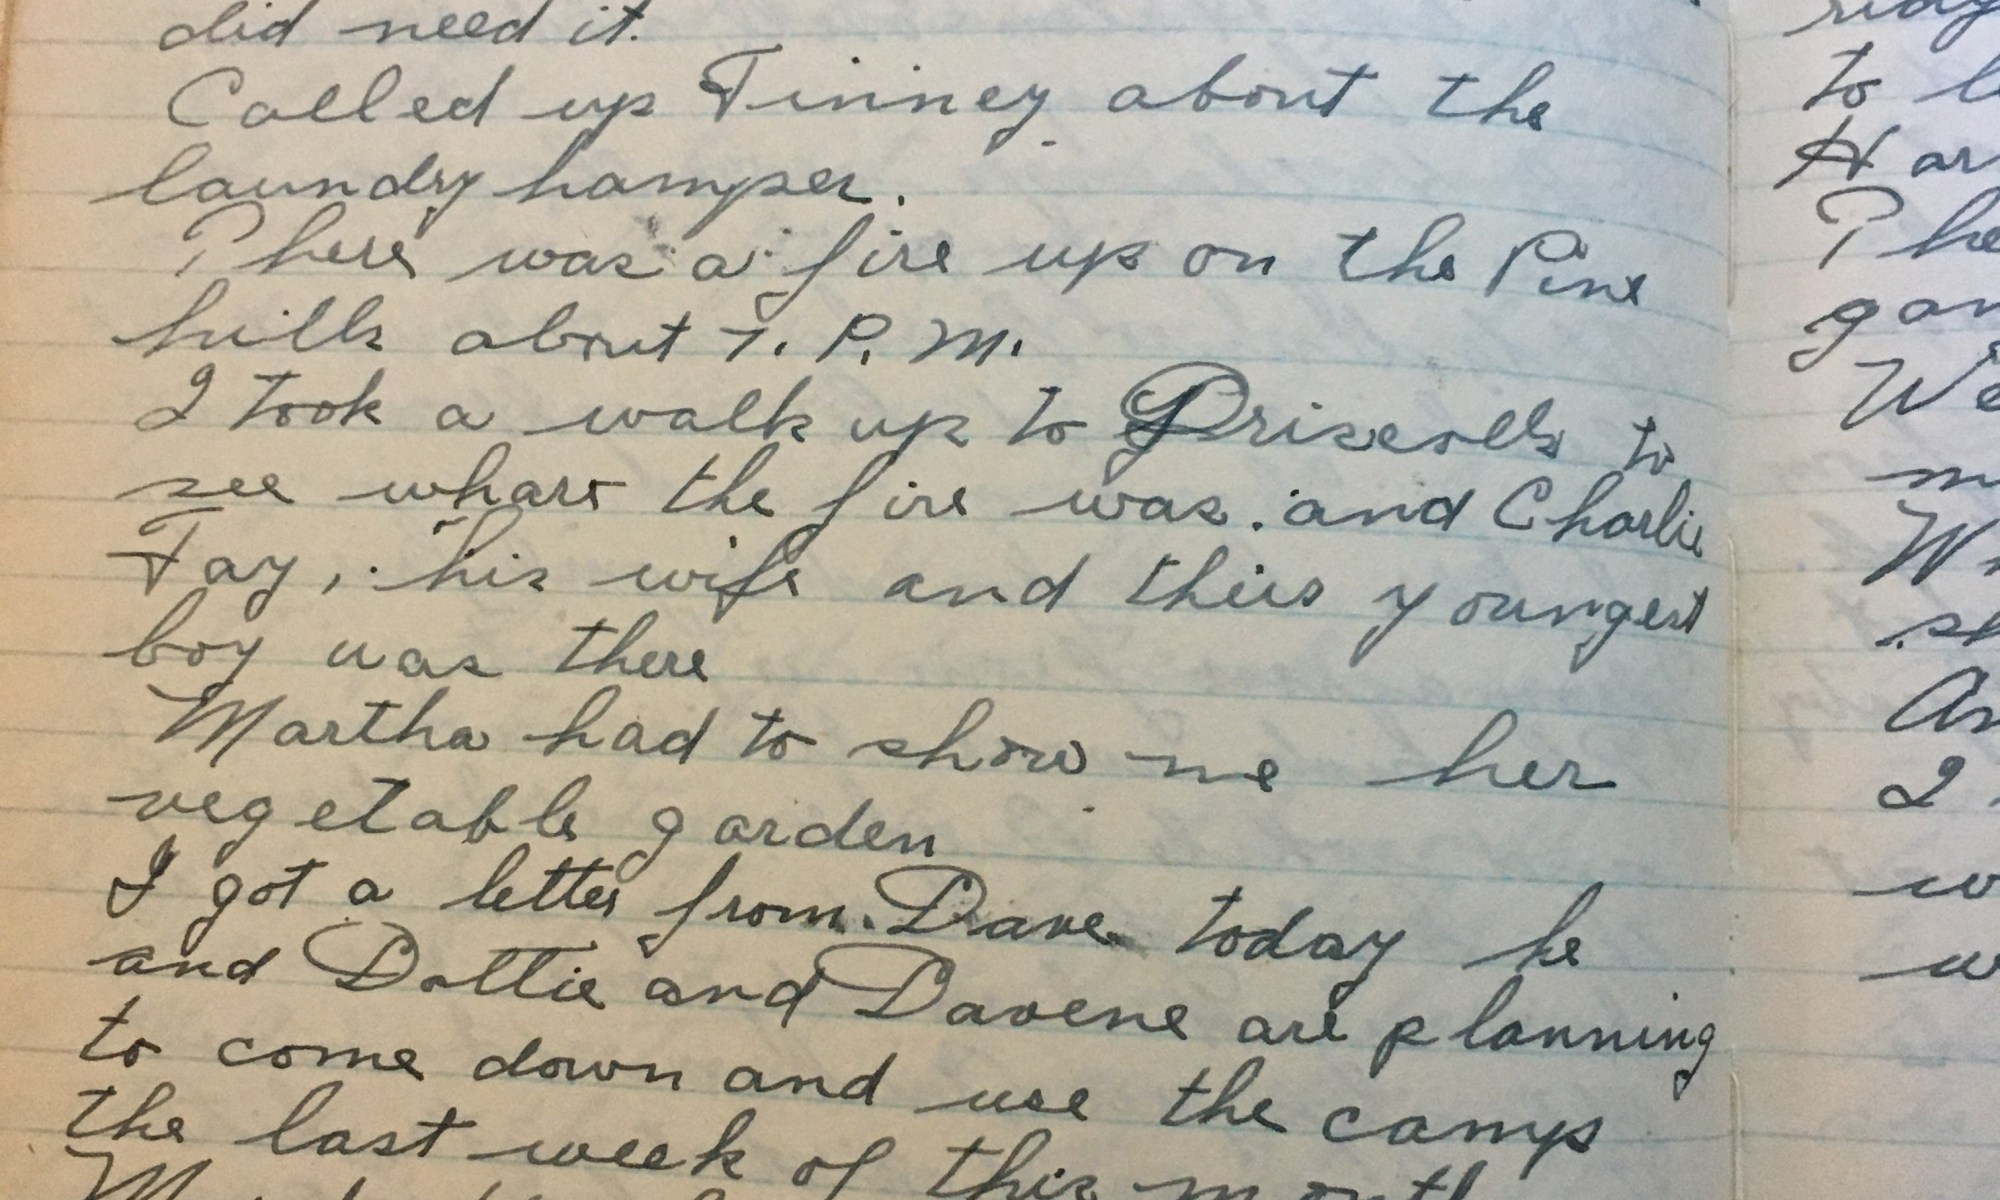 did need it.
Called up Finney about the
laundry hamper.
There was a fire up on the Pine
hills about 7. P. M.
I took a walk up to Driscolls to
see whare the fire was. and Charlie
Fay, his wife and thier youngest
boy was there
Martha had to show me her
vegetable garden
I got a letter from Dave today he
and Dottie and Davene are planning
to come down and use the camp
the last week of this month
to
Har
The
gar
We
Wh
An
I